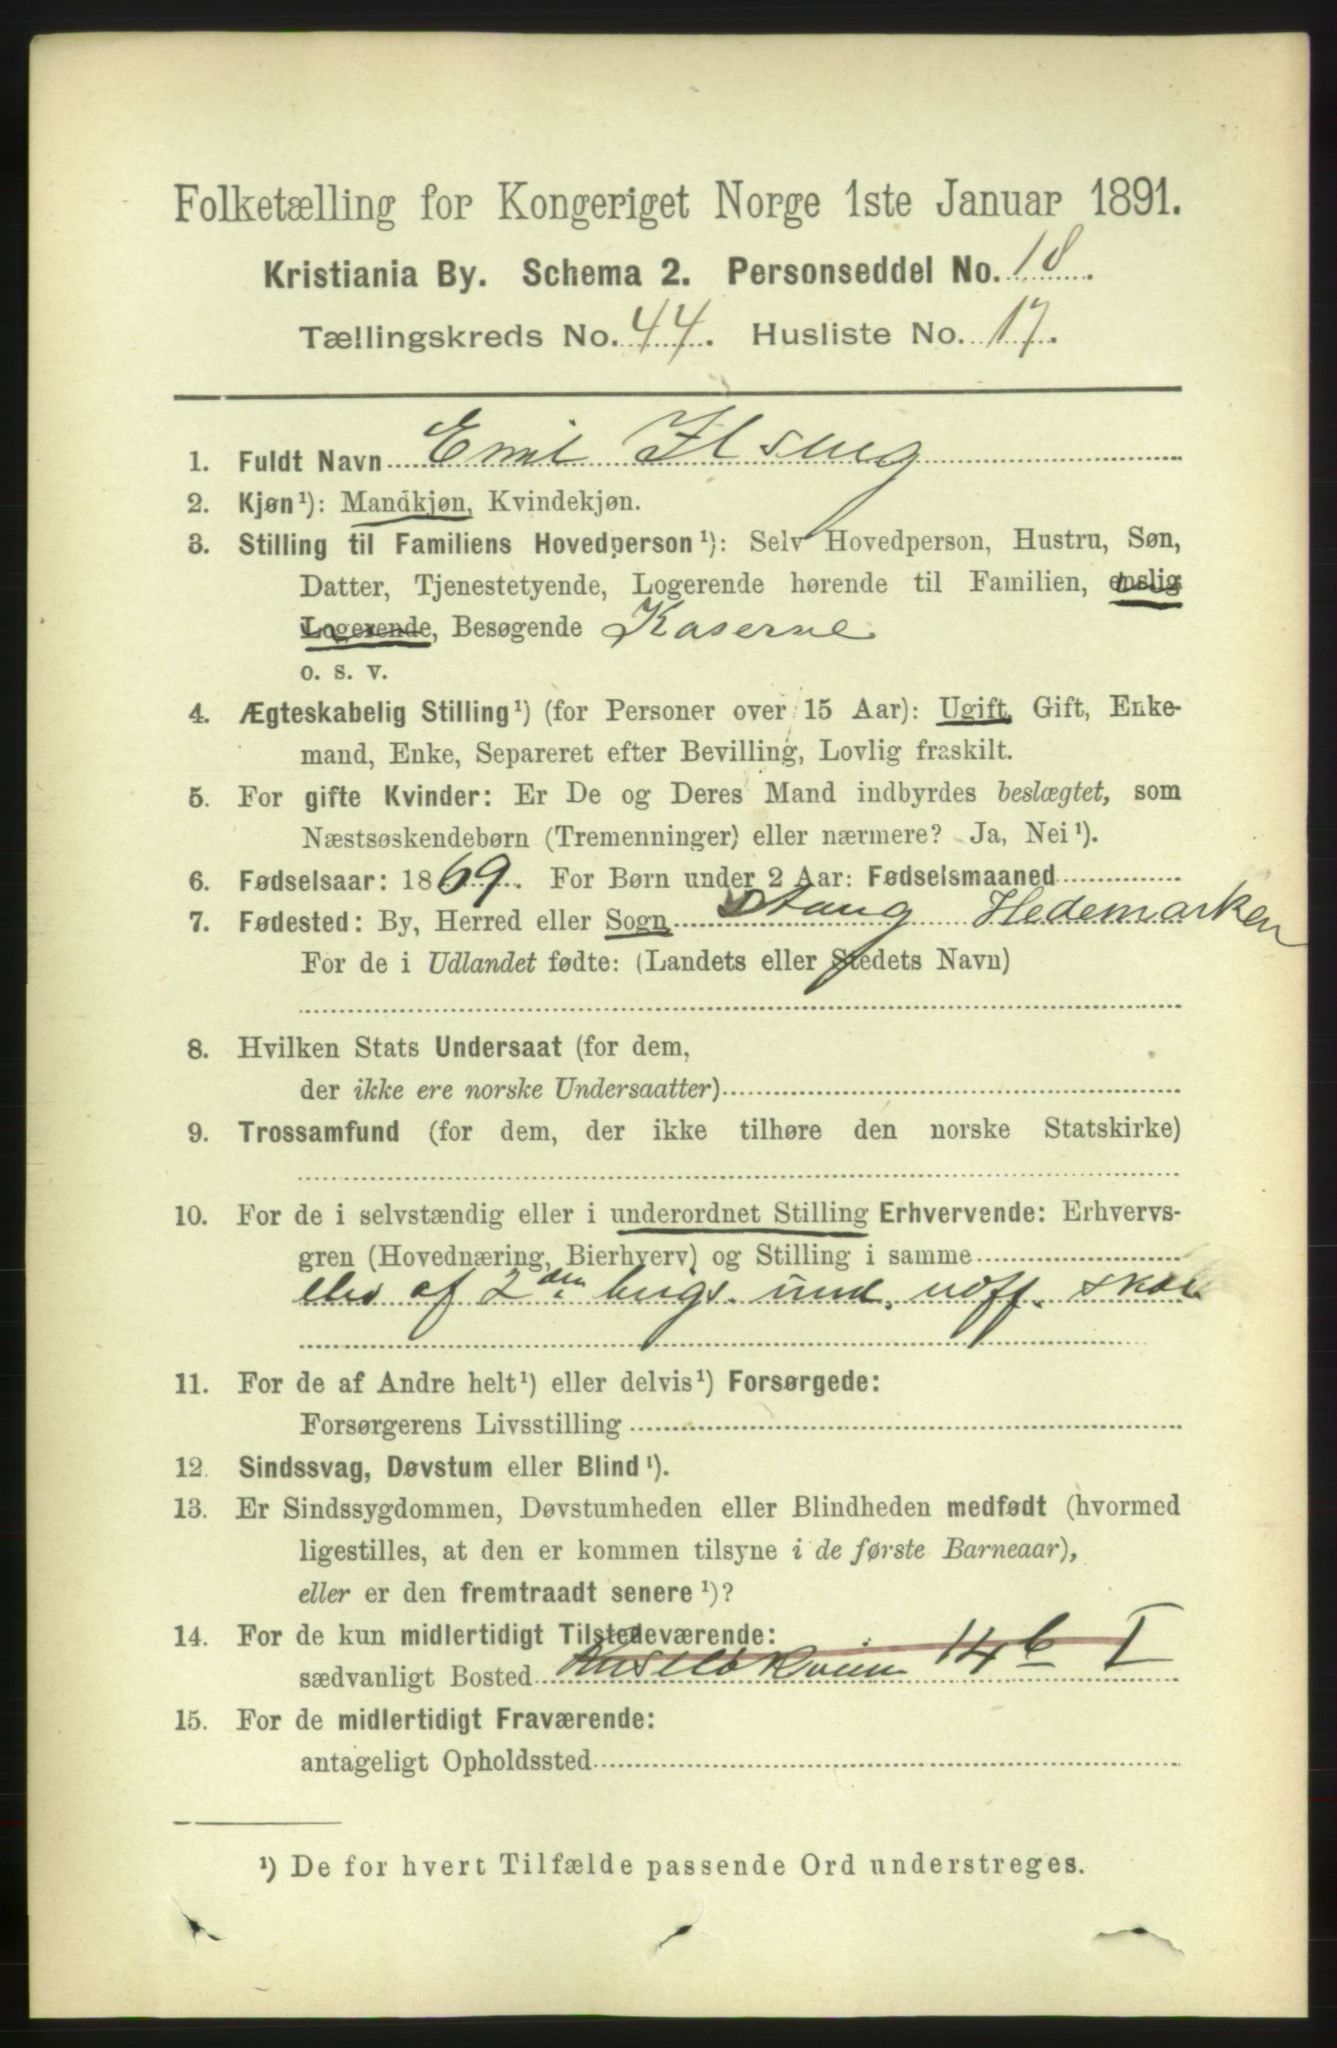 Folketælling for Kongeriget Norge 1ste Januar 1891.
Kristiania By. Schema 2. Personseddel No. 18.
Tællingskreds No. 44. Husliste No. 17.
1. Fuldt Navn Emil
2. Kjøn¹): Mandkjøn, Kvindekjøn.
3. Stilling til Familiens Hovedperson¹): Selv Hovedperson, Hustru, Søn,
Datter, Tjenestetyende, Logerende hørende til Familien, enslig
Logerende, Besøgende Kaserne
o. s. v.
4. Ægteskabelig Stilling¹) (for Personer over 15 Aar): Ugift, Gift, Enke-
mand, Enke, Separeret efter Bevilling, Lovlig fraskilt.
5. For gifte Kvinder: Er De og Deres Mand indbyrdes beslægtet, som
Næstsøskendebørn (Tremenninger) eller nærmere? Ja, Nei¹).
6. Fødselsaar: 1869. For Børn under 2 Aar: Fødselsmaaned
7. Fødested: By, Herred eller Sogn Stang Hedemarken
For de i Udlandet fødte: (Landets eller Stedets Navn)
8. Hvilken Stats Undersaat (for dem,
der ikke ere norske Undersaatter)
9. Trossamfund (for dem, der ikke tilhøre den norske Statskirke)
10. For de i selvstændig eller i underordnet Stilling Erhvervende: Erhvervs-
gren (Hovednæring, Bierhverv) og Stilling i samme
elev af 2den brigs. und. uoff. skole
11. For de af Andre helt¹) eller delvis¹) Forsørgede:
Forsørgerens Livsstilling
12. Sindssvag, Døvstum eller Blind¹).
13. Er Sindssygdommen, Døvstumheden eller Blindheden medfødt (hvormed
ligestilles, at den er kommen tilsyne i de første Barneaar),
eller er den fremtraadt senere¹)?
14. For de kun midlertidigt Tilstedeværende:
sædvanligt Bosted 14 b I
15. For de midlertidigt Fraværende:
antageligt Opholdssted
¹) De for hvert Tilfælde passende Ord understreges.